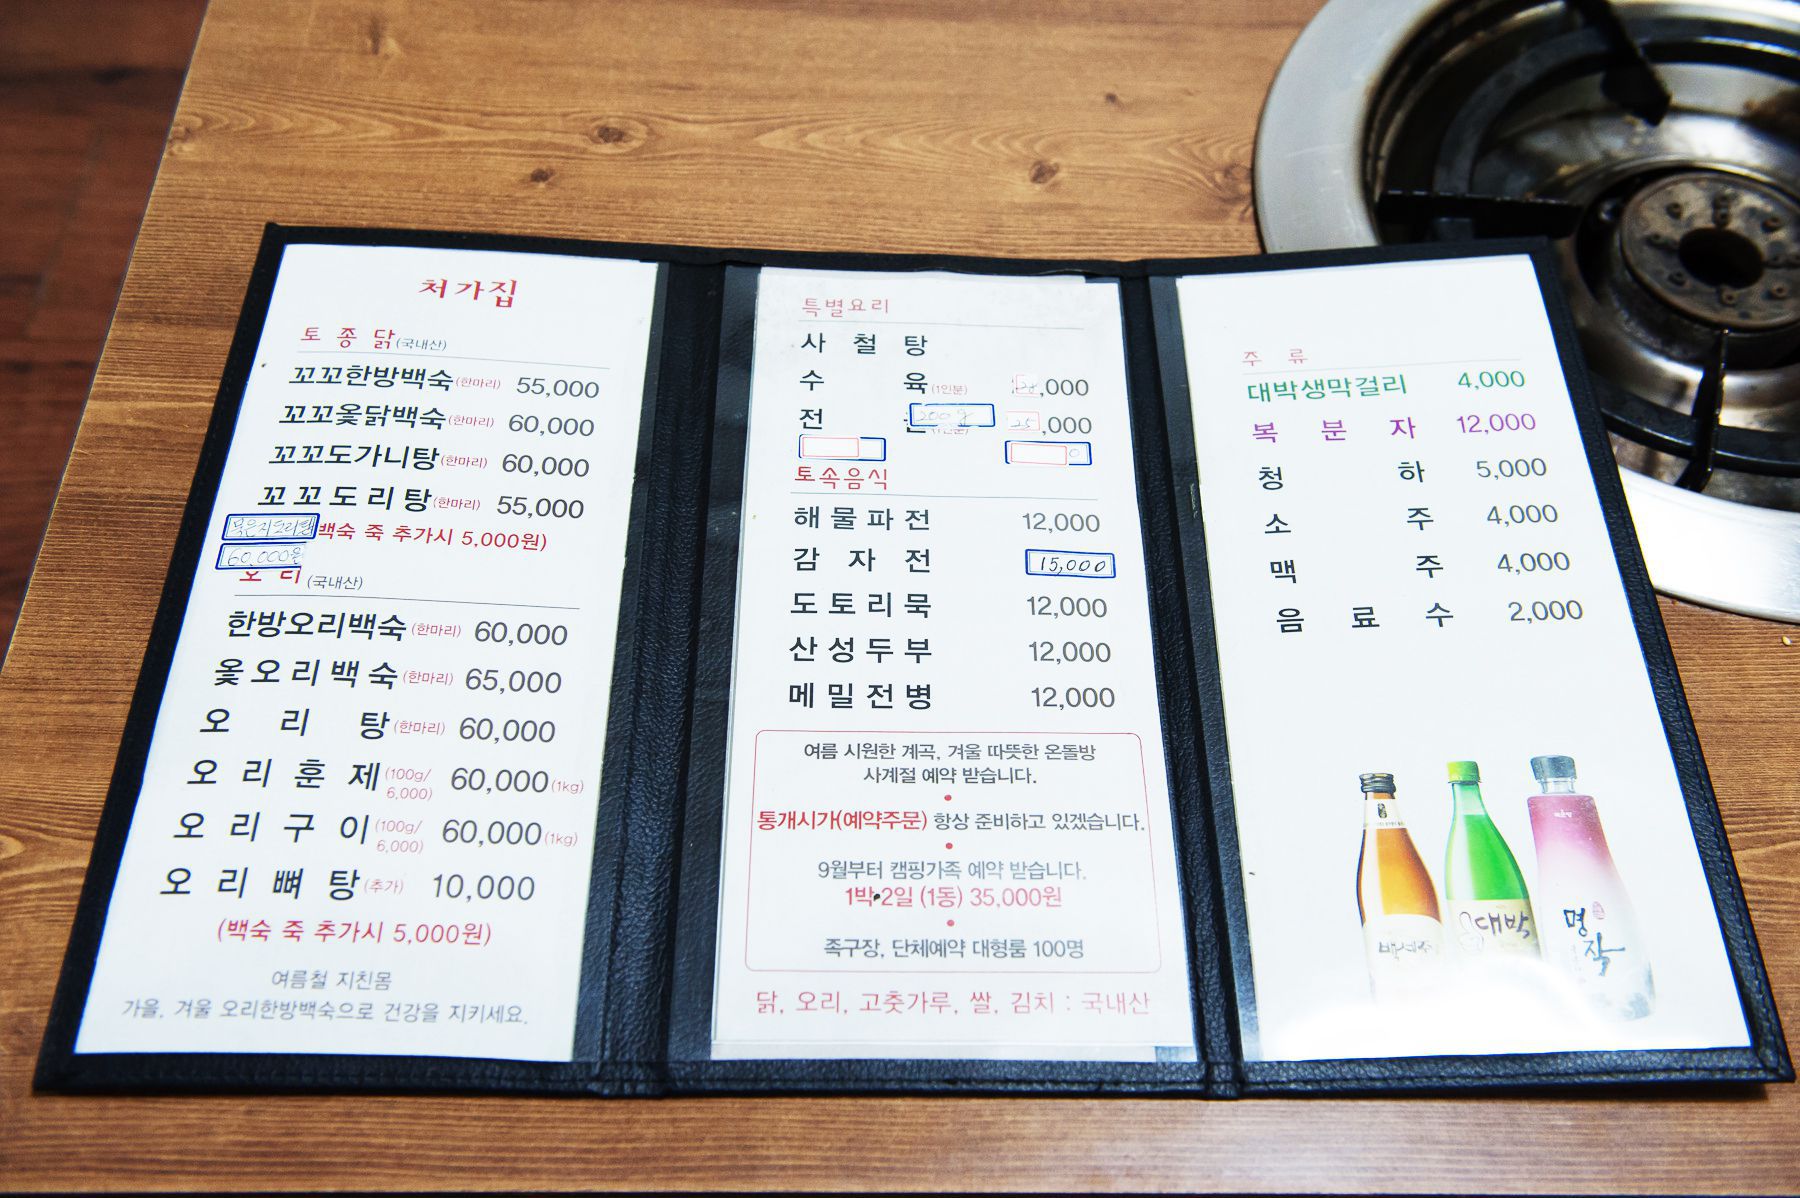 처가집
토종닭(국내산)
꼬꼬한방백숙(한마리) 55,000
꼬꼬옻닭백숙(한마리) 60,000
꼬꼬도가니탕(한마리) 60,000
꼬꼬도리탕(한마리) 55,000
묵은지도리탕 백숙 죽 추가시 5,000원)
60,000원
오리(국내산)
한방오리백숙(한마리) 60,000
옻오리백숙(한마리) 65,000
오리탕(한마리) 60,000
오리훈제(100g/6,000) 60,000(1kg)
오리구이(100g/6,000) 60,000(1kg)
오리뼈탕(추가) 10,000
(백숙 죽 추가시 5,000원)
여름철 지친몸
가을, 겨울 오리한방백숙으로 건강을 지키세요.
특별요리
사철탕
수육(1인분) ,000
전 200g 25,000
토속음식
해물파전 12,000
감자전 15,000
도토리묵 12,000
산성두부 12,000
메밀전병 12,000
여름 시원한 계곡, 겨울 따뜻한 온돌방
사계절 예약 받습니다.
통개시가(예약주문) 항상 준비하고 있겠습니다.
9월부터 캠핑가족 예약 받습니다.
1박2일 (1동) 35,000원
족구장, 단체예약 대형룸 100명
닭, 오리, 고춧가루, 쌀, 김치 : 국내산
주류
대박생막걸리 4,000
복분자 12,000
청하 5,000
소주 4,000
맥주 4,000
음료수 2,000
백세주
대박
명작